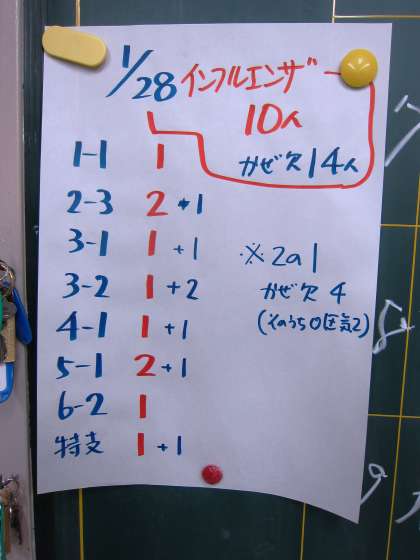 1/28 インフルエンザ
10人
かぜ欠14人
1-1 1
2-3 2+1
3-1 1+1
3-2 1+2
4-1 1+1
5-1 2+1
6-2 1
特支 1+1
※2の1
かぜ欠4
(そのうち0区気2)